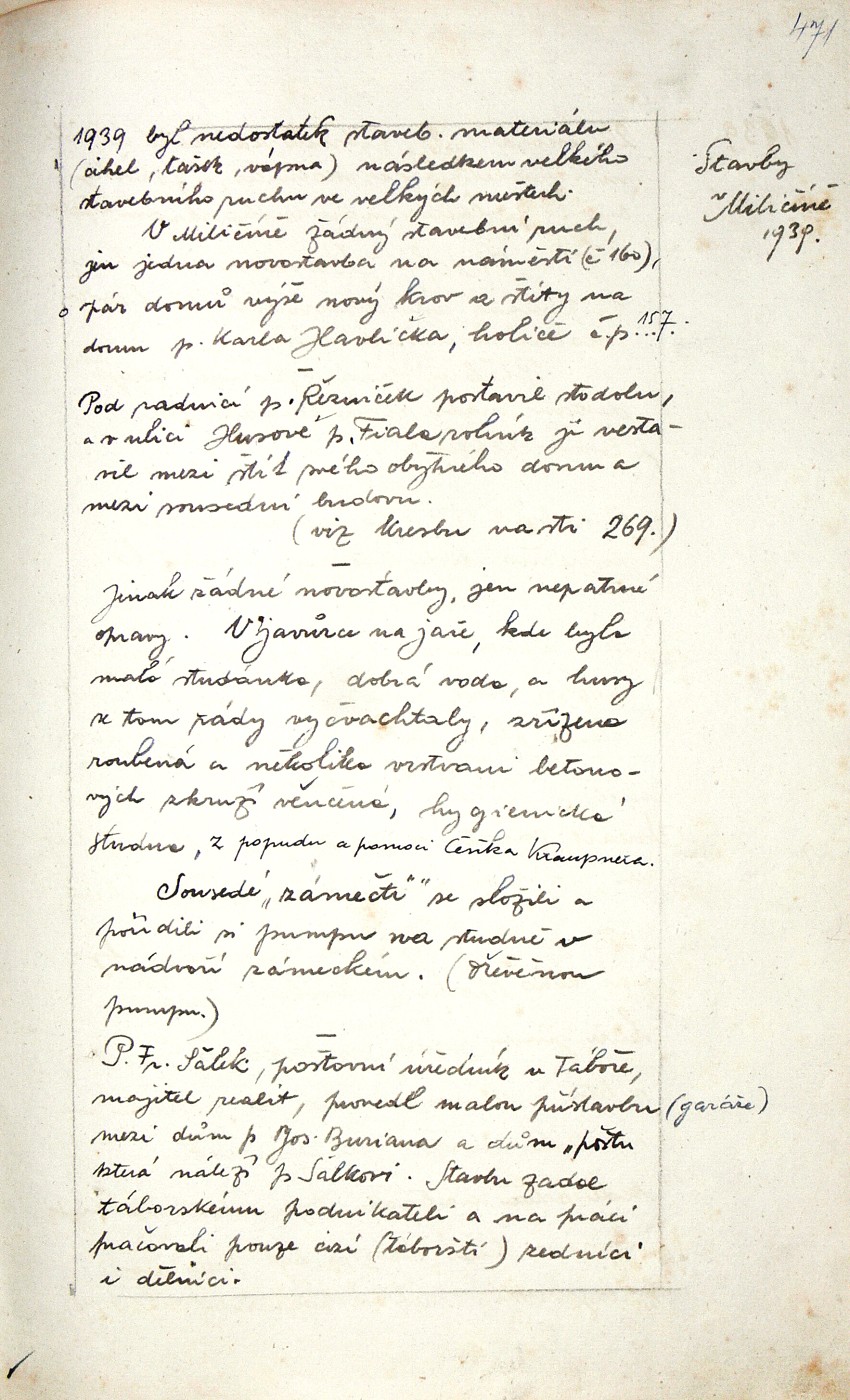 471
1939 byl nedostatek staveb. materiálu
(cihel, tašek, vápna) následkem velkého
stavebního ruchu ve velkých městech.
Stavby
v Miličíně
1939.
V Miličíně žádný stavební ruch,
jen jedna novostavba na náměstí (č 160),
pár domů výše nový krov a štíty na
domu p. Karla Havlíčka, holiče č.p. 157.
Pod radnicí p. Řezníček postavil stodolu,
a v ulici Husově p. Fiala rolník ji vesta-
vil mezi štít svého obytného domu a
mezi sousední budovu.
(viz kresbu na str 269.)
Jinak žádné novostavby, jen nepatrné
opravy. V Javůrce na jaře, kde byla
malá studánka, dobrá voda, a husy
v tom rády vyčvachtaly, zřízena
roubená a několika vrstvami betono-
vých skruží věnčená, hygienická
studna, z popudu a pomoci Čeňka Kraupnera.
Sousedé „zámečtí" se složili a
pořídili si pumpu na studně v
nádvoří zámeckém. (Dřevěnou
pumpu.)
P. Fr. Šálek, poštovní úředník v Táboře,
majitel realit, provedl malou přístavbu (garáže)
mezi dům p Jos. Buriana a dům „poštu
která náleží p Šálkovi. Stavbu zadal
táborskému podnikateli a na práci
pracovali pouze cizí (táborští) zedníci
i dělníci.